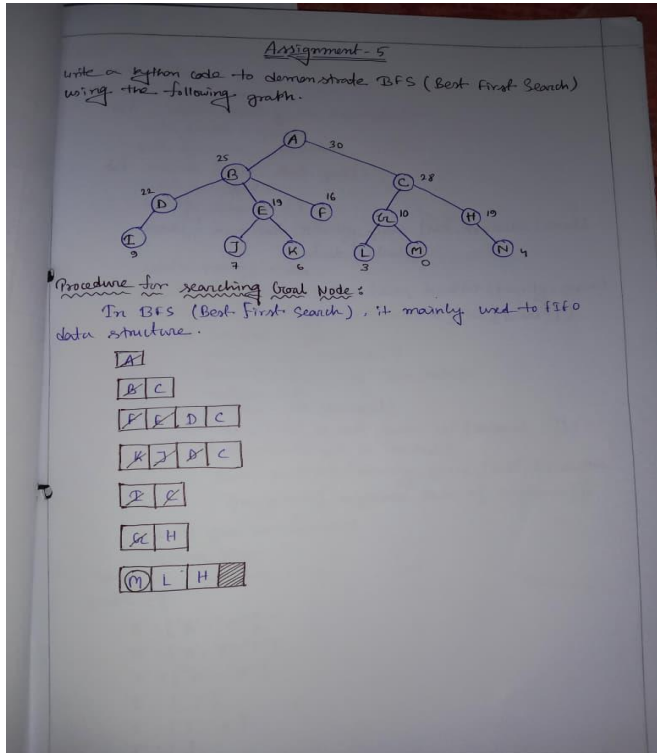 Assignment - 5
write a python code to demonstrade BFS (Best First Search)
using the following graph.
A 30
25 B C 28
22 D E 19 F 16 G 10 H 19
I J K L M N 4
9 7 6 3 0
Procedure for searching Goal Node :
In BFS (Best First Search), it mainly used to FIFO
data structure.
A
B C
F E D C
K J D C
I C
G H
M L H